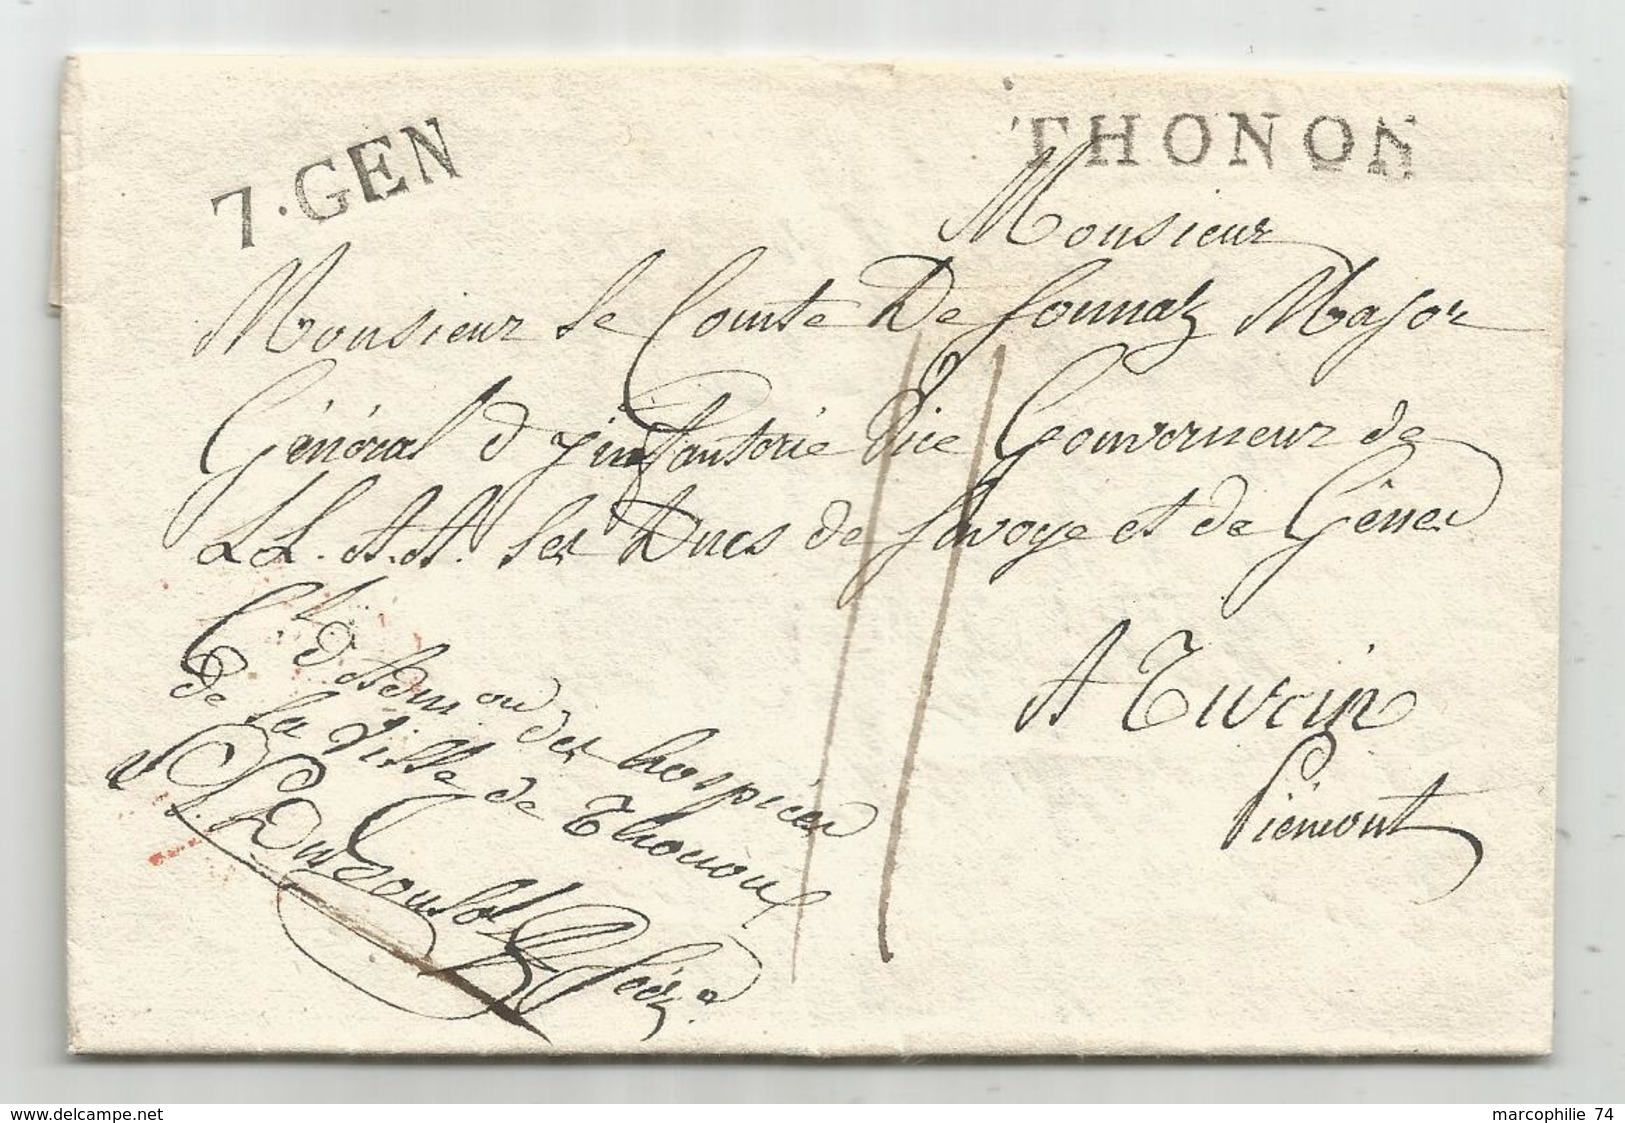 7·GEN
THONON
Monsieur
Monsieur le Comte De Sonnaz Major
Général d'jinfanterie Vice Gouverneur de
LL. AA. les Ducs de Savoye et de Gênes
11
A Turin
Piémont
d'Adm on des hospices
de la Ville de Thonon
www.delcampe.net
marcophilie 74